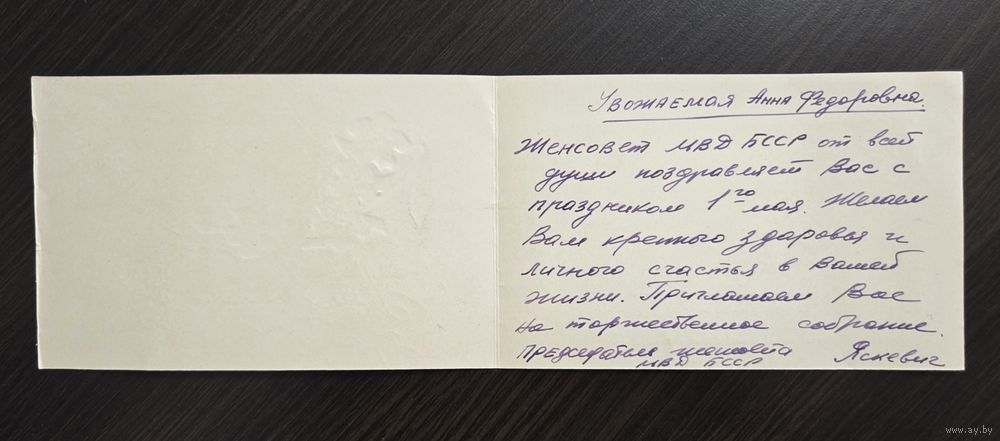 Уважаемая Анна Федоровна.
Женсовет МВД БССР от всей
души поздравляет Вас с
праздником 1го мая. Желаем
Вам крепкого здоровья и
личного счастья в Вашей
жизни. Приглашаем Вас
на торжественное собрание.
Председатель женсовета Яскевич
МВД БССР
www.ay.by